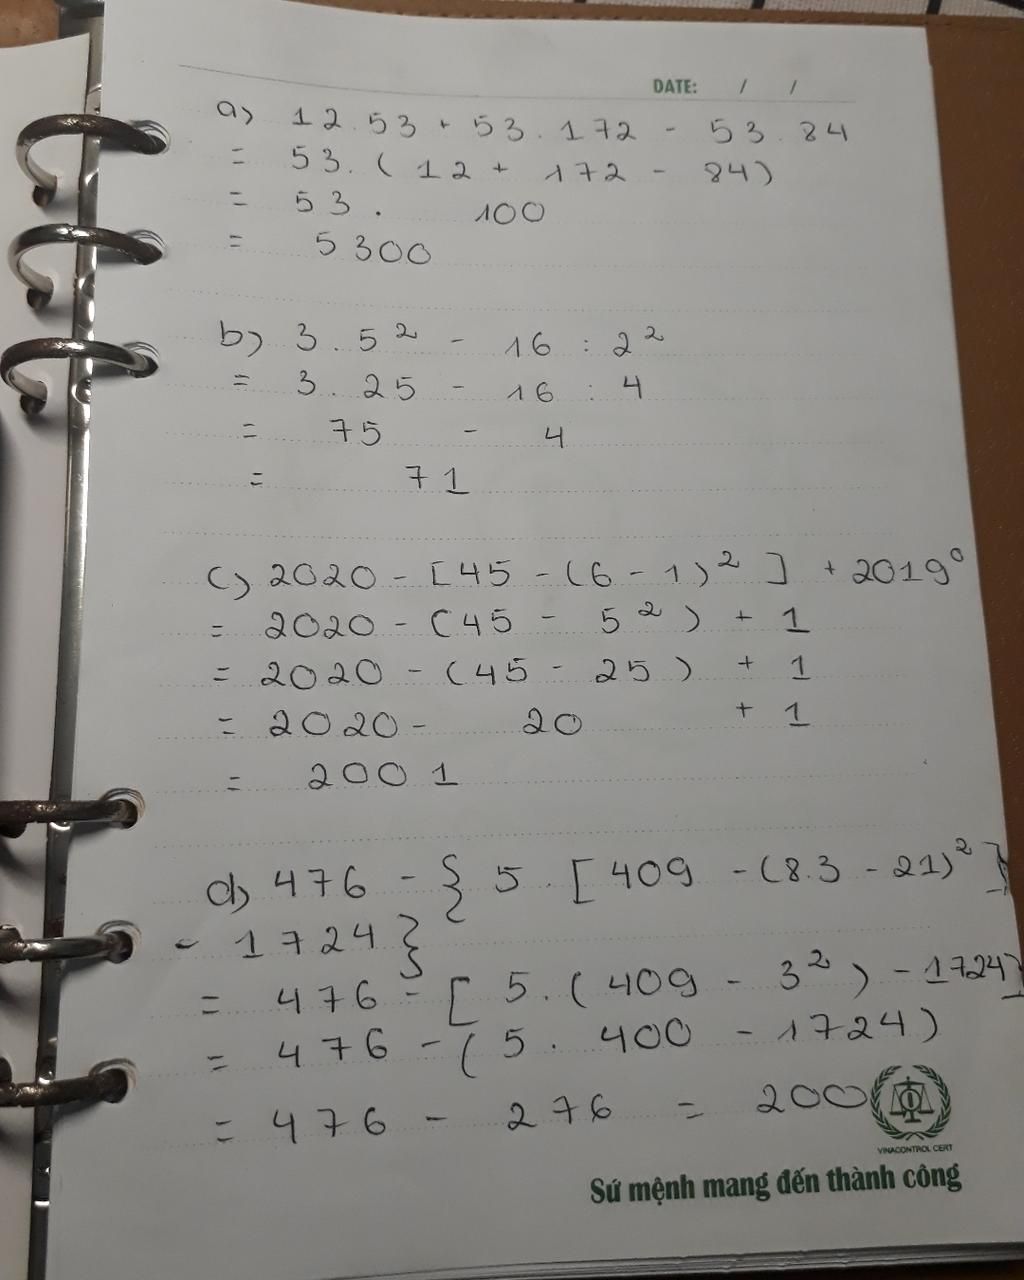 DATE: / /
a) 12.53 + 53.172 - 53.84
= 53.(12 + 172 - 84)
= 53. 100
= 5300
b) 3.5² - 16 : 2²
= 3.25 - 16 : 4
= 75 - 4
= 71
c) 2020 - [45 - (6 - 1)²] + 2019⁰
= 2020 - (45 - 5²) + 1
= 2020 - (45 - 25) + 1
= 2020 - 20 + 1
= 2001
d) 476 - { 5.[409 - (8.3 - 21)²]
- 1724}
= 476 - [5.(409 - 3²) - 1724]
= 476 - (5.400 - 1724)
= 476 - 276 = 200
VINACONTROL CERT
Sứ mệnh mang đến thành công